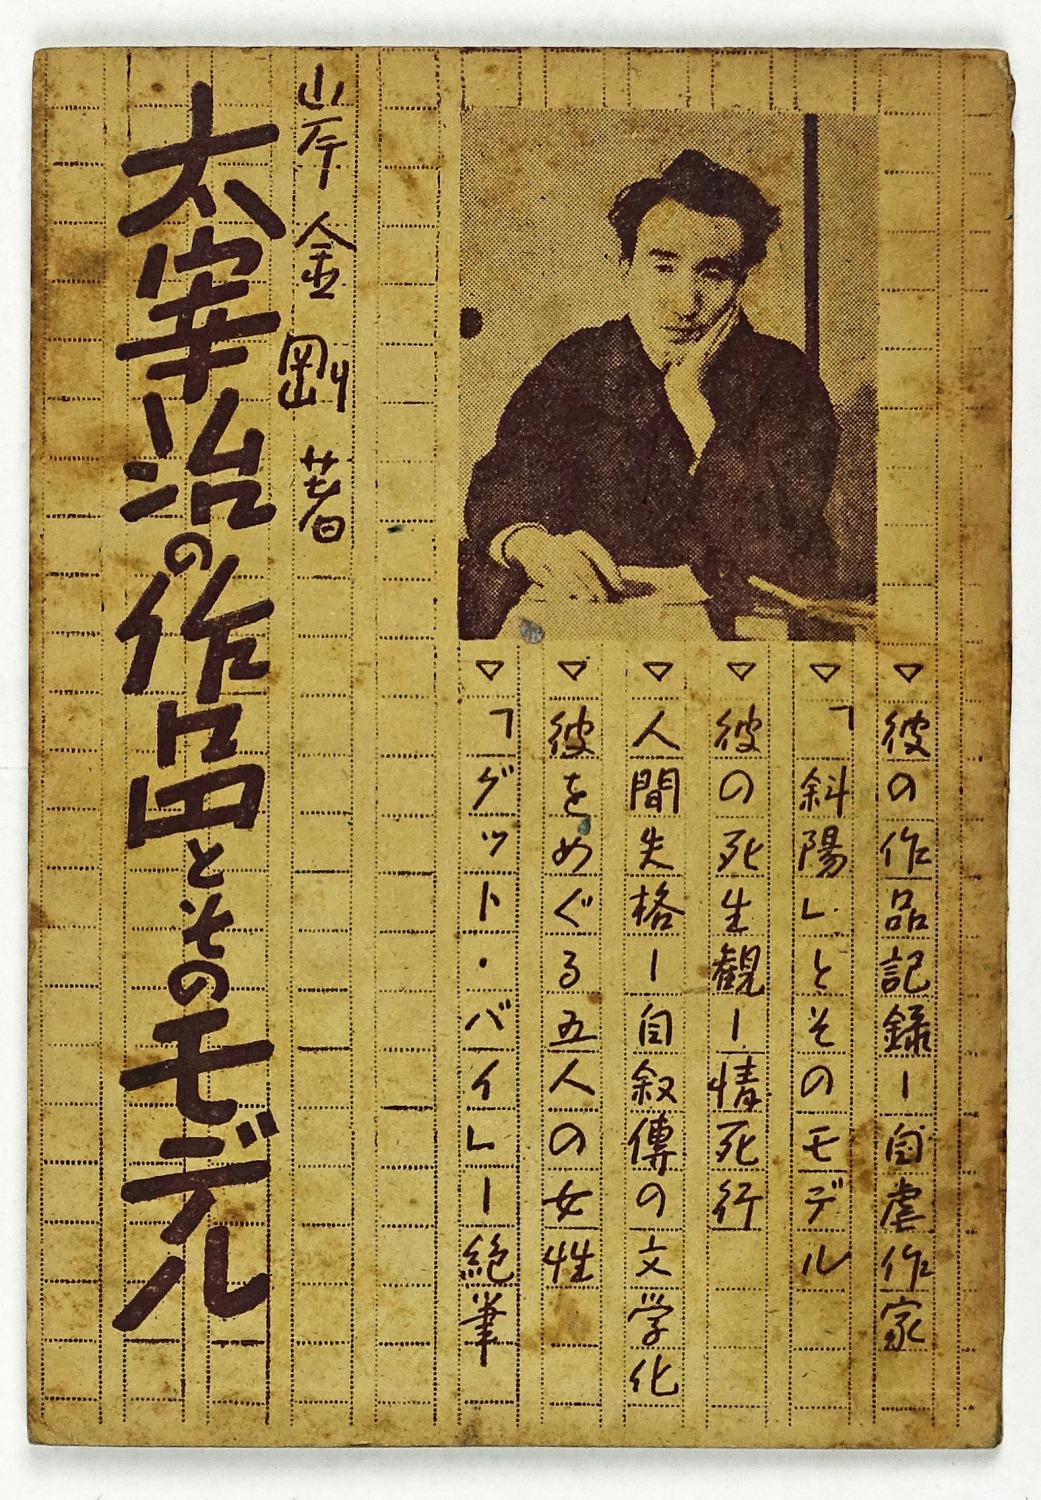 ▽彼の作品記録ー自虐作家
▽「斜陽」とそのモデル
▽彼の死生観ー情死行
▽人間失格ー自叙傳の文学化
▽彼をめぐる五人の女性
▽「グット・バイ」ー絶筆
岸金剛 著
太宰治の作品とそのモデル